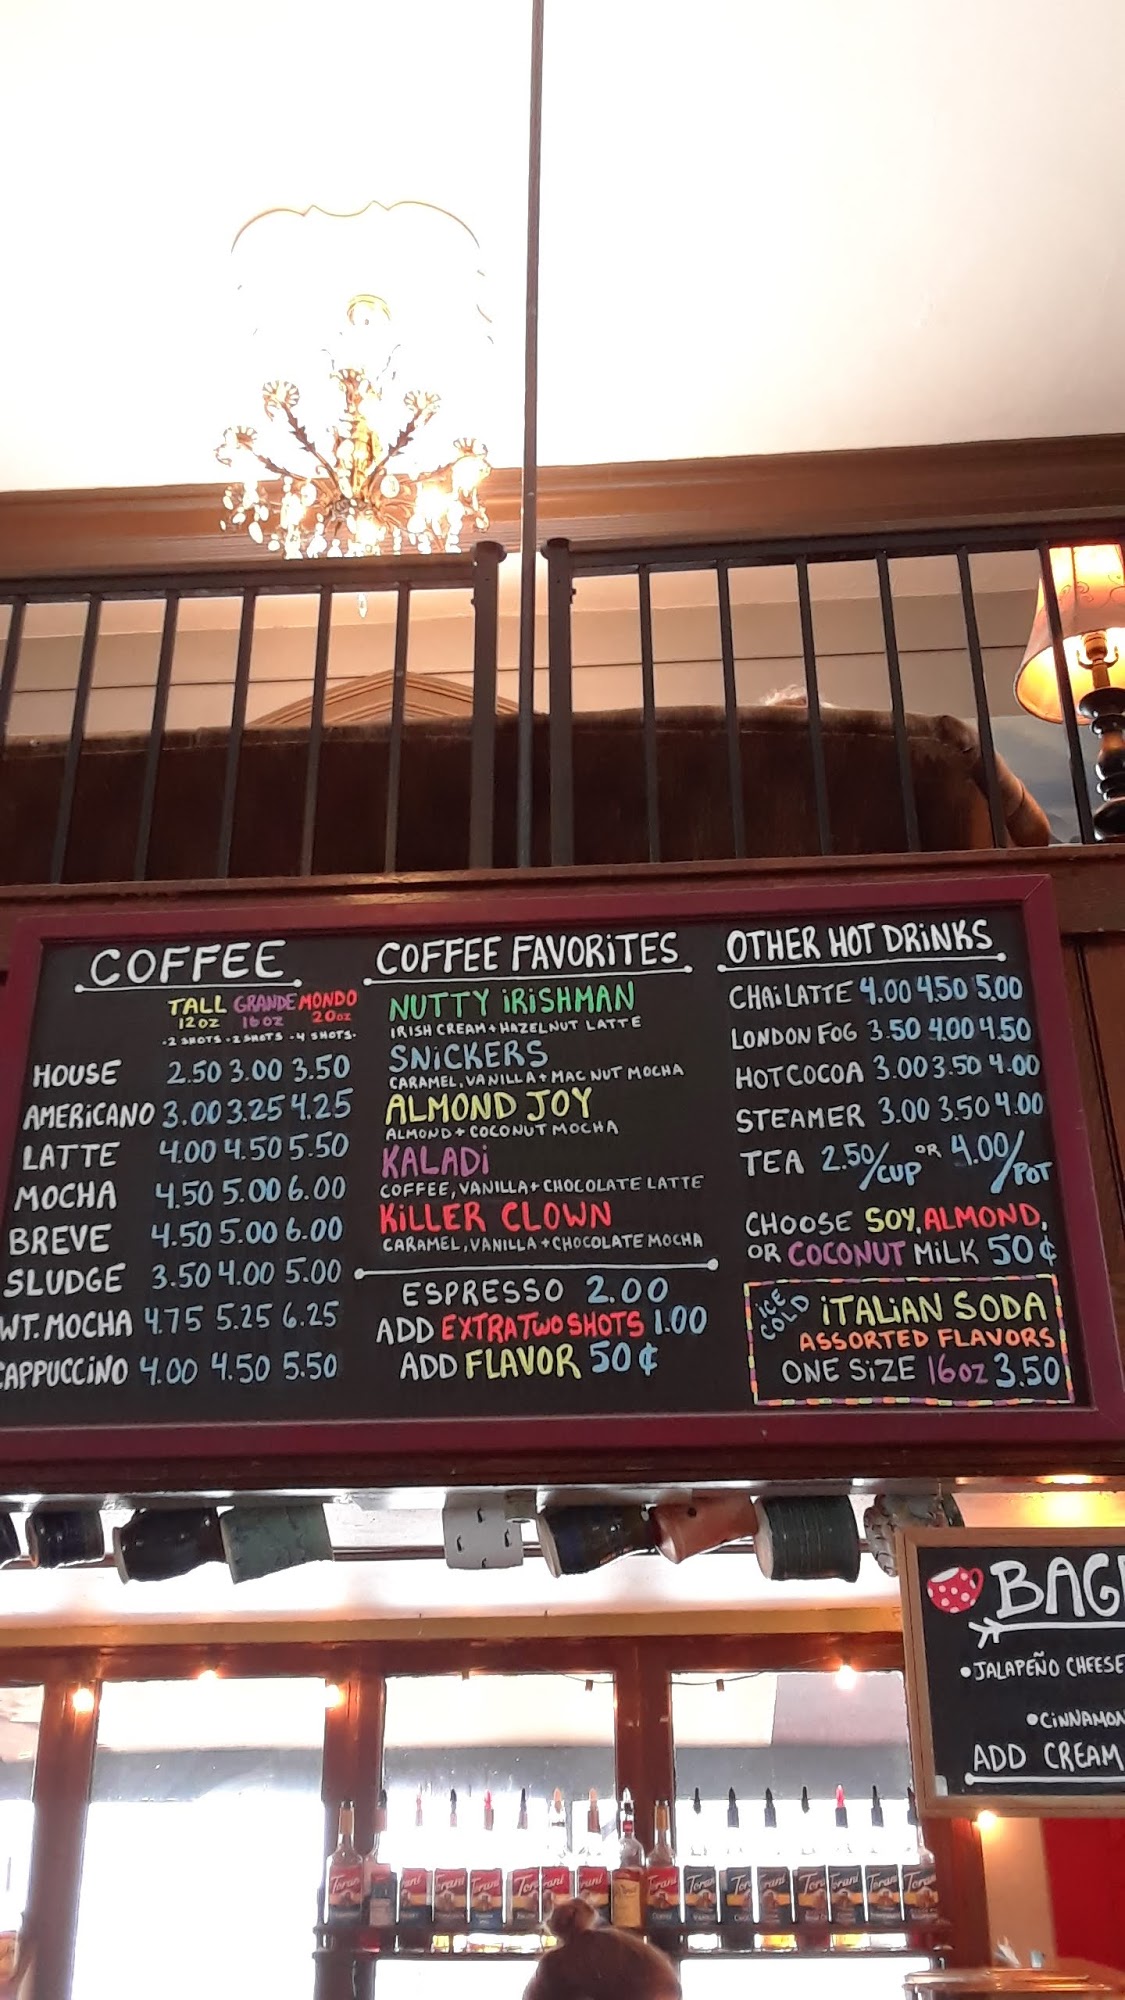 COFFEE
TALL GRANDE MONDO
12oz 16oz 20oz
·2 SHOTS·2 SHOTS·4 SHOTS·
HOUSE 2.50 3.00 3.50
AMERiCANO 3.00 3.25 4.25
LATTE 4.00 4.50 5.50
MOCHA 4.50 5.00 6.00
BREVE 4.50 5.00 6.00
SLUDGE 3.50 4.00 5.00
WT. MOCHA 4.75 5.25 6.25
CAPPUCCiNO 4.00 4.50 5.50
COFFEE FAVORiTES
NUTTY iRiSHMAN
IRISH CREAM + HAZELNUT LATTE
SNiCKERS
CARAMEL, VANILLA + MAC NUT MOCHA
ALMOND JOY
ALMOND + COCONUT MOCHA
KALADi
COFFEE, VANILLA + CHOCOLATE LATTE
KiLLER CLOWN
CARAMEL, VANILLA + CHOCOLATE MOCHA
ESPRESSO 2.00
ADD EXTRA TWO SHOTS 1.00
ADD FLAVOR 50¢
OTHER HOT DRiNKS
CHAi LATTE 4.00 4.50 5.00
LONDON FOG 3.50 4.00 4.50
HOT COCOA 3.00 3.50 4.00
STEAMER 3.00 3.50 4.00
TEA 2.50/CUP OR 4.00/POT
CHOOSE SOY, ALMOND,
OR COCONUT MiLK 50¢
iCE COLD iTALiAN SODA
ASSORTED FLAVORS
ONE SiZE 16oz 3.50
BAG
•JALAPEÑO CHEESE
•CiNNAMON
ADD CREAM
Torani Torani Torani Torani Torani Torani Torani Torani Torani Torani Torani